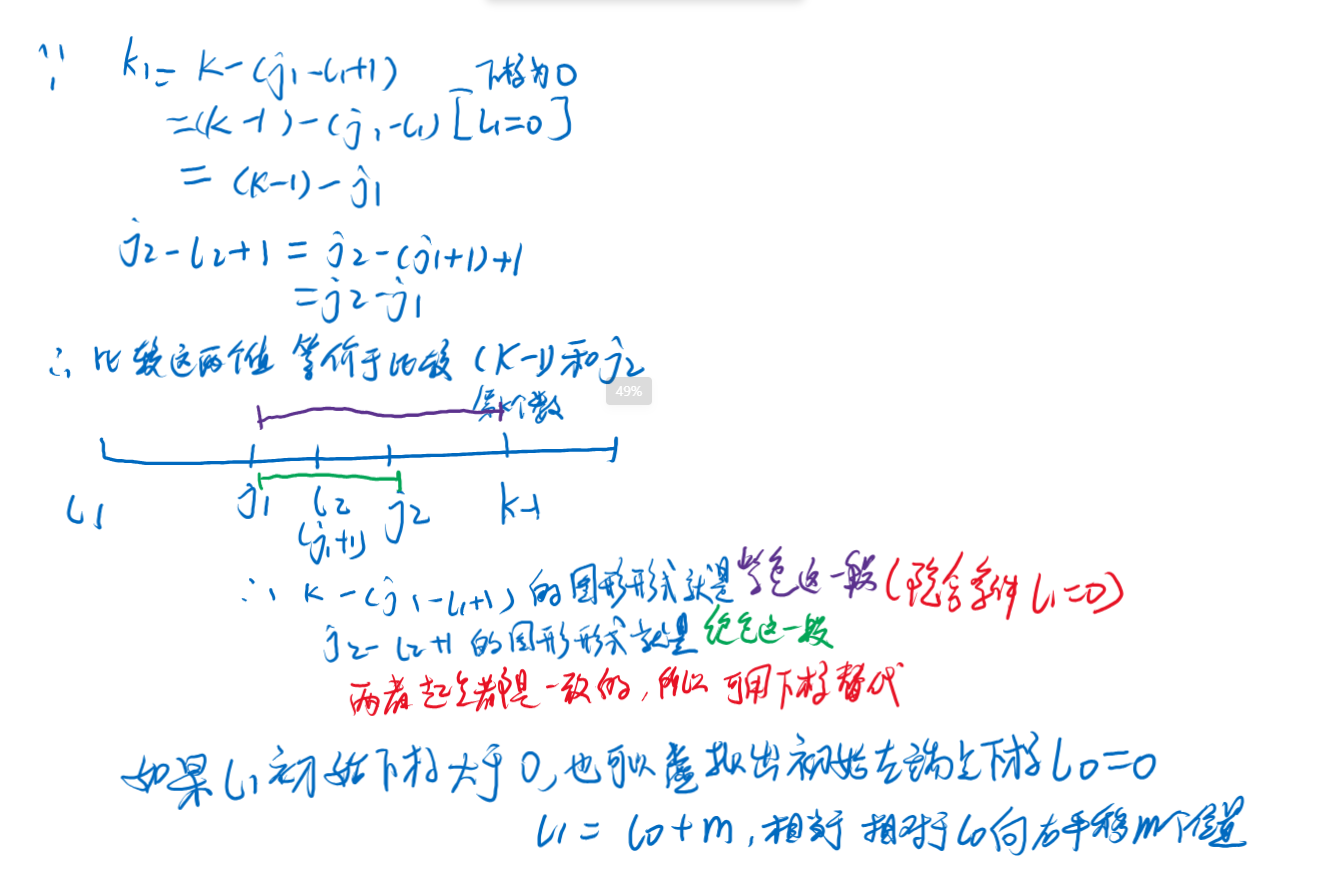 ∵ k₁ = k-(j₁-l₁+1) 下标为0
=(k-1)-(j₁-l₁) [l₁=0]
= (k-1)-j₁
j₂-l₂+1 = j₂-(j₁+1)+1
=j₂-j₁
∴ 比较这两个值 等价于比较 (k-1)和j₂
49%
第k个数
l₁ j₁ l₂ j₂ k-1
(j₁+1)
∴ k-(j₁-l₁+1) 的图形形式就是紫色这一段(隐含条件 l₁=0)
j₂-l₂+1 的图形形式就是绿色这一段
两者起点都是一致的,所以可用下标替代
如果l₁初始下标大于0,也可以虚拟出初始左端点下标l₀=0
l₁ = l₀+m,相当于 相对于l₀向右平移m个位置